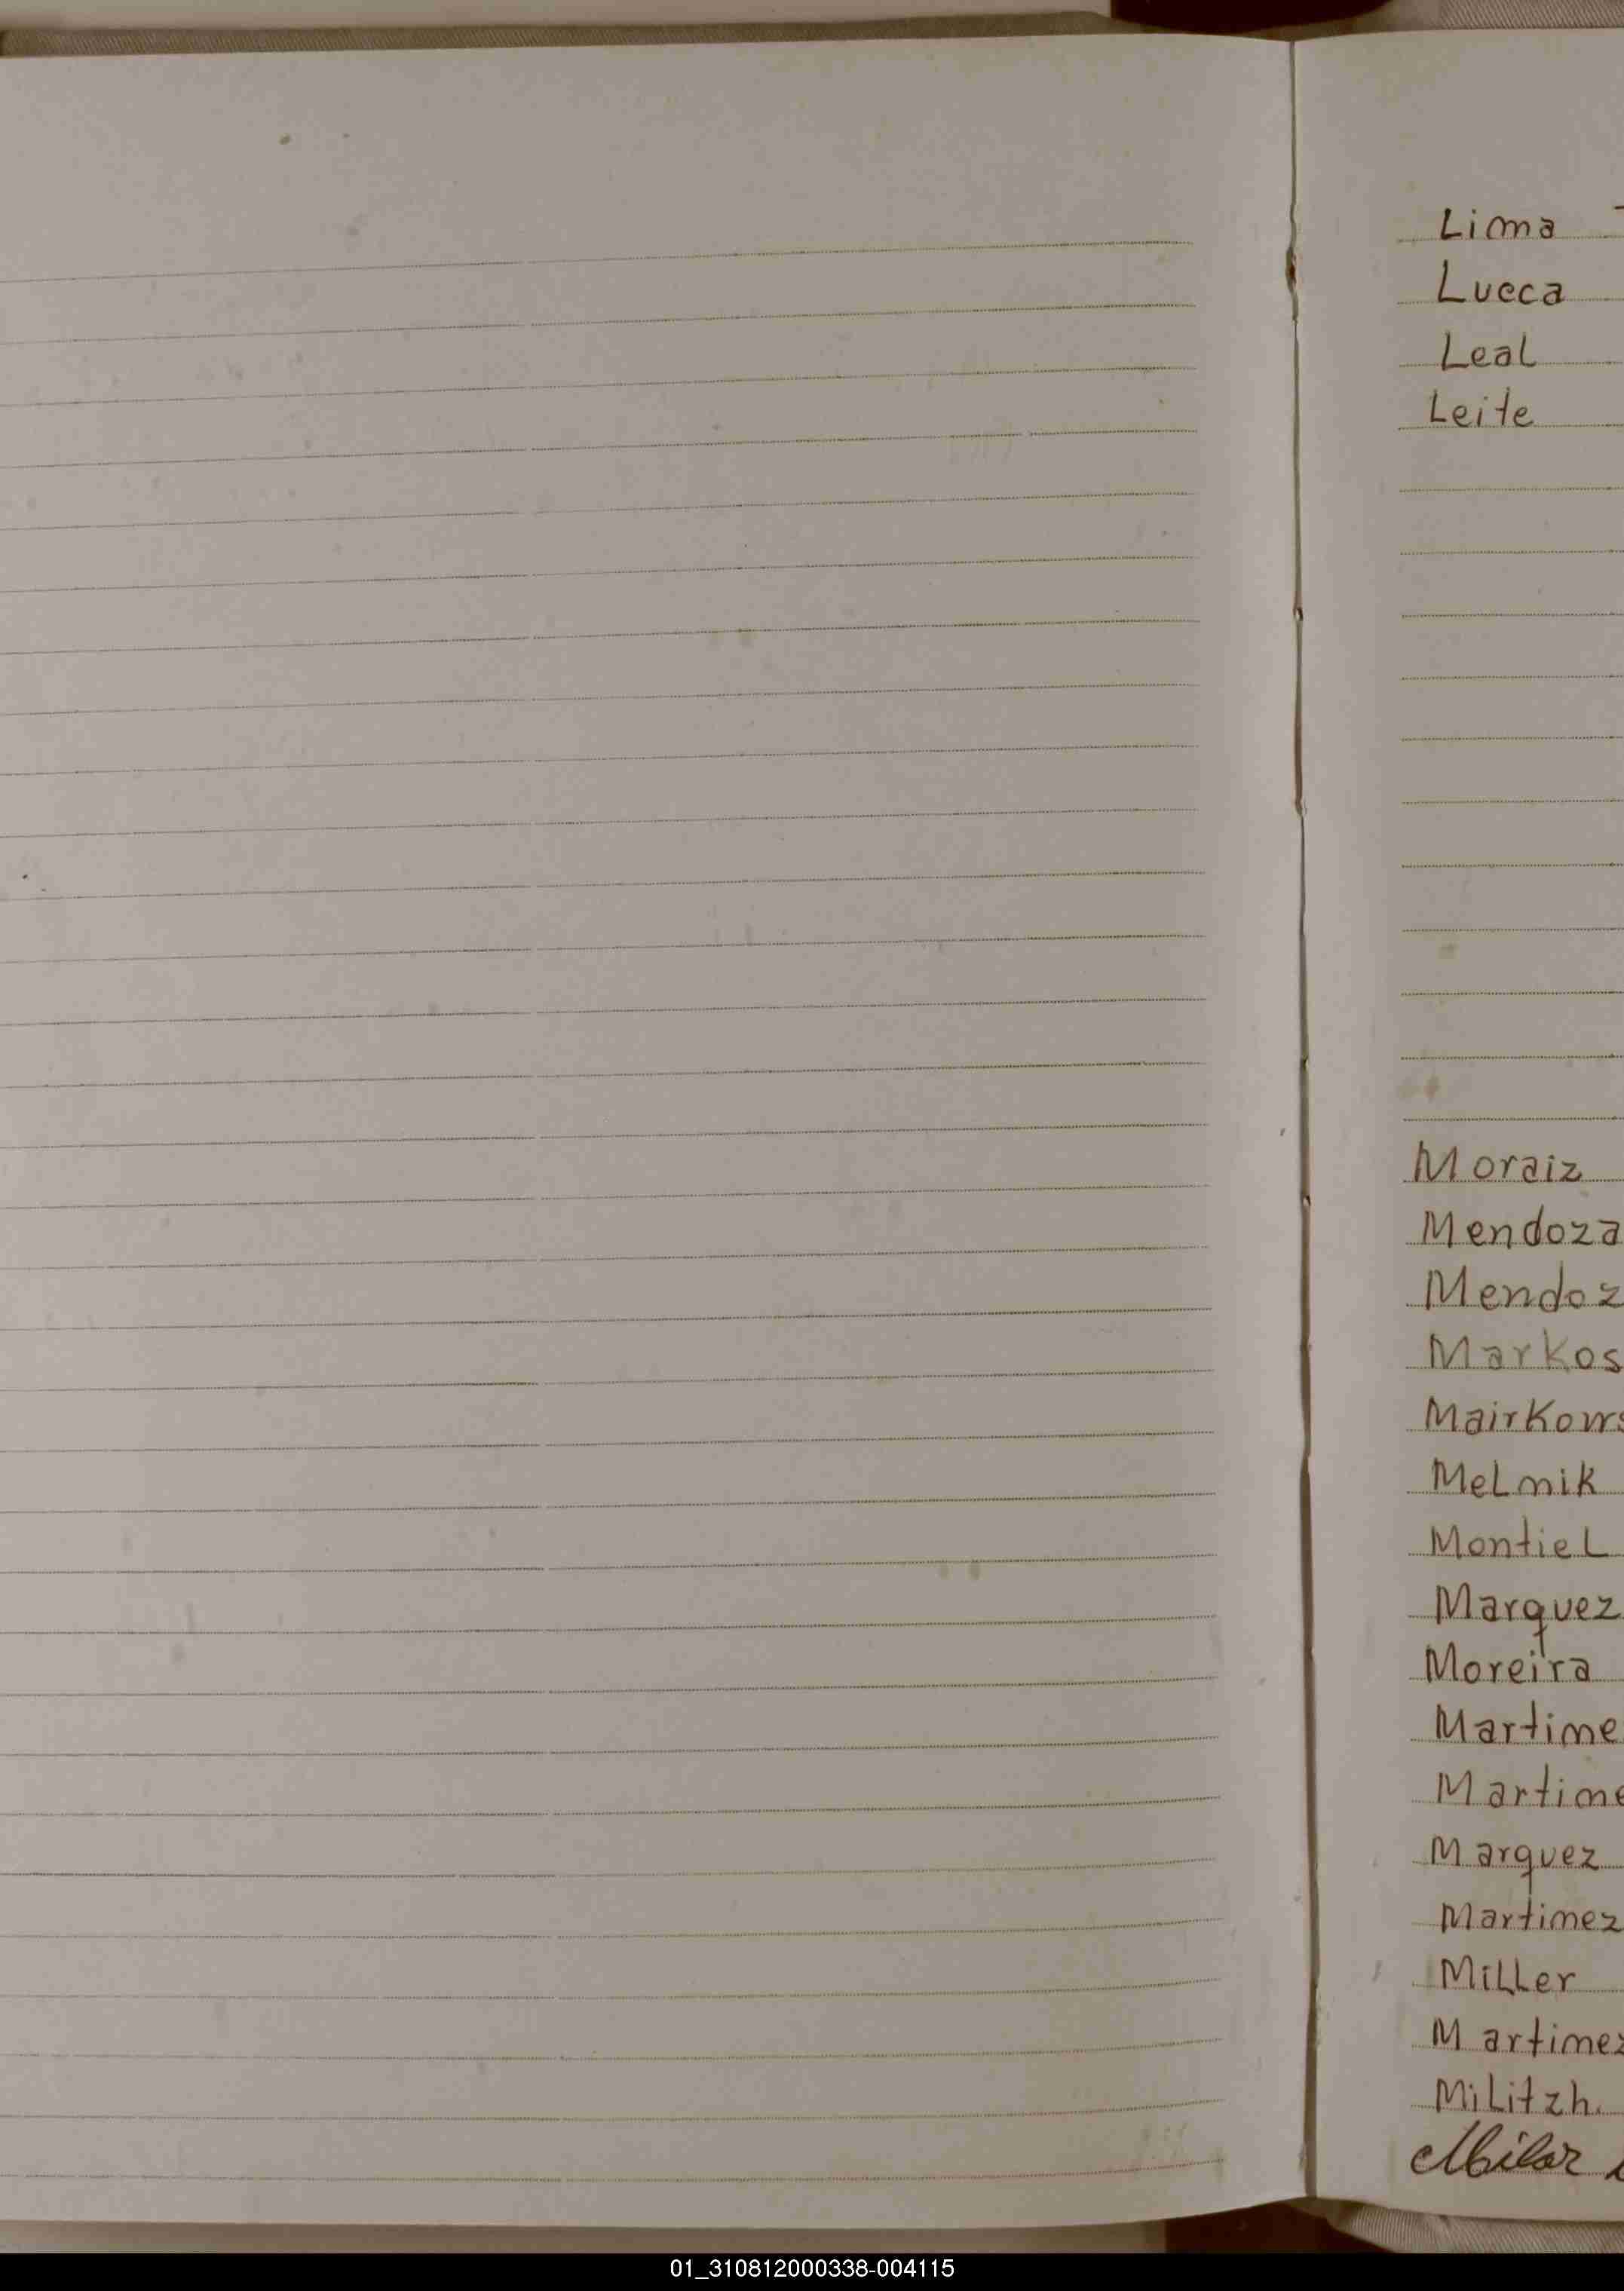 Lima
Lucca
Leal
Leite
Moraiz
Mendoza
Mendoz
Markos
Mairkows
Melmik
Montiel
Marquez
Moreira
Martime
Martime
Marquez
Martimez
Miller
Martimez
Militzh.
Milar
01_310812000338-004115